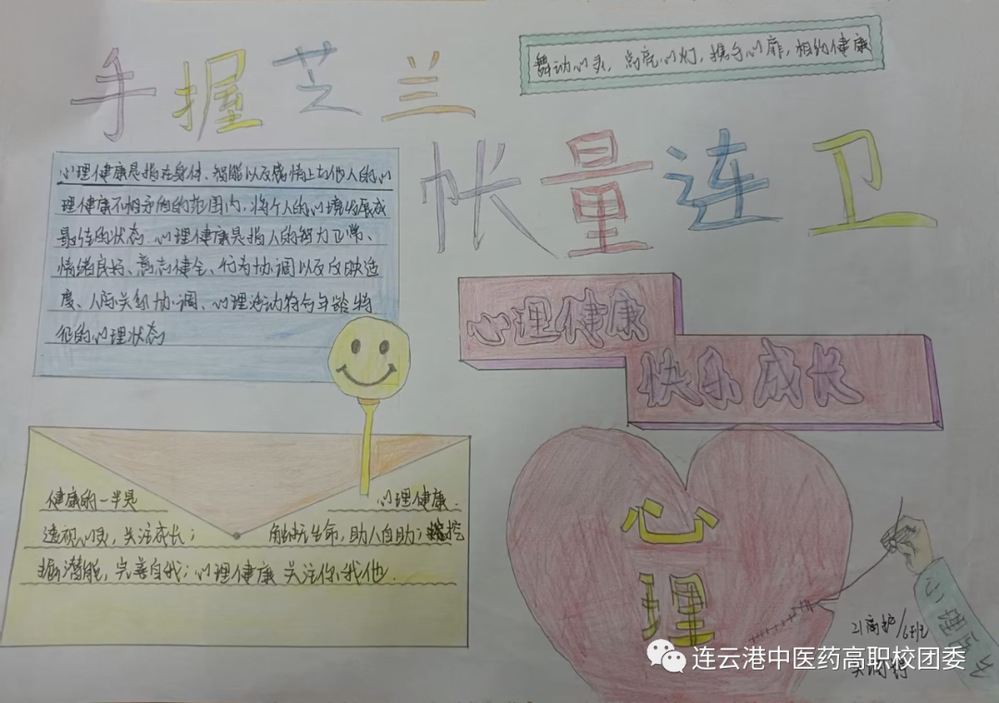 手握芝兰
舞动心灵，点亮心灯，携手心扉，相约健康
帐量连卫
心理健康是指在身体、智能以及感情上与他人的心
理健康不相矛盾的范围内，将个人的心境发展成
最佳的状态. 心理健康是指人的智力正常、
情绪良好、意志健全、行为协调以及反映适
度、人际关系协调、心理活动符合年龄特
征的心理状态
心理健康
快乐成长
健康的一半是 心理健康.
透视心灵，关注成长； 触摸生命，助人自助；挖
掘潜能，完善自我；心理健康 关注你我他.
心
理
心理医生
21高护/6班
连云港中医药高职校团委